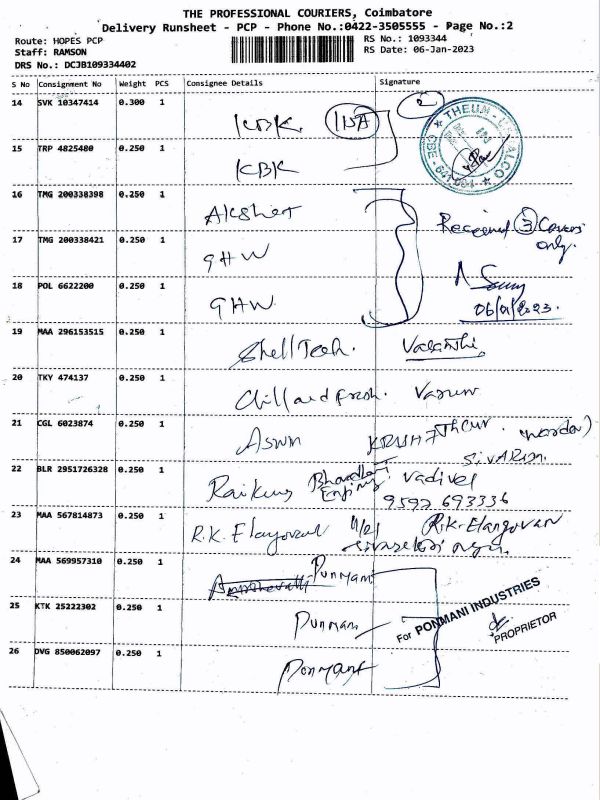 THE PROFESSIONAL COURIERS, Coimbatore
Delivery Runsheet - PCP - Phone No.:0422-3505555 - Page No.:2
Route: HOPES PCP
Staff: RAMSON
DRS No.: DCJB109334402
RS No.: 1093344
RS Date: 06-Jan-2023
S No Consignment No Weight PCS Consignee Details Signature
14 SVK 10347414 0.300 1 KBK 2
15 TRP 4825480 0.250 1 KBK
16 TMG 200338398 0.250 1 Akshert
17 TMG 200338421 0.250 1 GHW Received 3 Covers only.
18 POL 6622200 0.250 1 GHW 06/01/2023.
19 MAA 296153515 0.250 1 Shell Tech. Vasanthi
20 TKY 474137 0.250 1 Chill and Fresh. Varun
21 CGL 6023874 0.250 1 Aswin SIVARAM.
22 BLR 2951726328 0.250 1 Vadivel
9597 693336
23 MAA 567814873 0.250 1 R.K. Elangovan R.K. Elangovan
24 MAA 569957310 0.250 1 Punmani
25 KTK 25222302 0.250 1 Punmani For PONMANI INDUSTRIES
PROPRIETOR
26 DVG 850062097 0.250 1 Ponmani